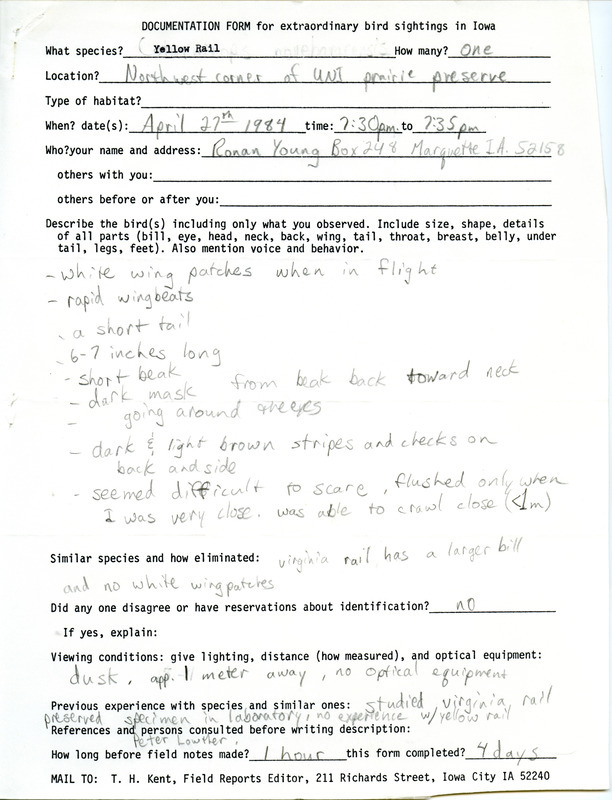 DOCUMENTATION FORM for extraordinary bird sightings in Iowa
What species? Yellow Rail How many? one
Location? Northwest corner of UNI prairie preserve
Type of habitat?
When? date(s): April 27th 1984 time: 7:30pm to 7:35pm
Who?your name and address: Ronan Young Box 248 Marquette IA. 52158
others with you:
others before or after you:
Describe the bird(s) including only what you observed. Include size, shape, details
of all parts (bill, eye, head, neck, back, wing, tail, throat, breast, belly, under
tail, legs, feet). Also mention voice and behavior.
- white wing patches when in flight
- rapid wingbeats
- a short tail
- 6-7 inches long
- short beak
- dark mask from beak back toward neck
- going around eyes
- dark & light brown stripes and checks on
back and side
- seemed difficult to scare, flushed only when
I was very close. was able to crawl close (<1m)
Similar species and how eliminated: virginia rail has a larger bill
and no white wingpatches
Did any one disagree or have reservations about identification? no
If yes, explain:
Viewing conditions: give lighting, distance (how measured), and optical equipment:
dusk, app. 1 meter away, no optical equipment
Previous experience with species and similar ones: studied virginia rail
preserved specimen in laboratory, no experience w/yellow rail
References and persons consulted before writing description:
Peter Lowther,
How long before field notes made? 1 hour this form completed? 4 days
MAIL TO: T. H. Kent, Field Reports Editor, 211 Richards Street, Iowa City IA 52240